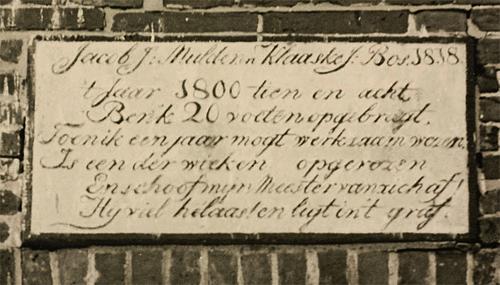 Jacob J: Mulder n Klaaske J: Bos. 1818.
't Jaar 1800 tien en acht,
Ben ik 20 voeten opgebragt.
Toen ik een jaar mogt werksaam wezen
Is een der wieken opgerezen
En schoof mijn Meester van zich af!
Hy viel helaas! en ligt in't graf.